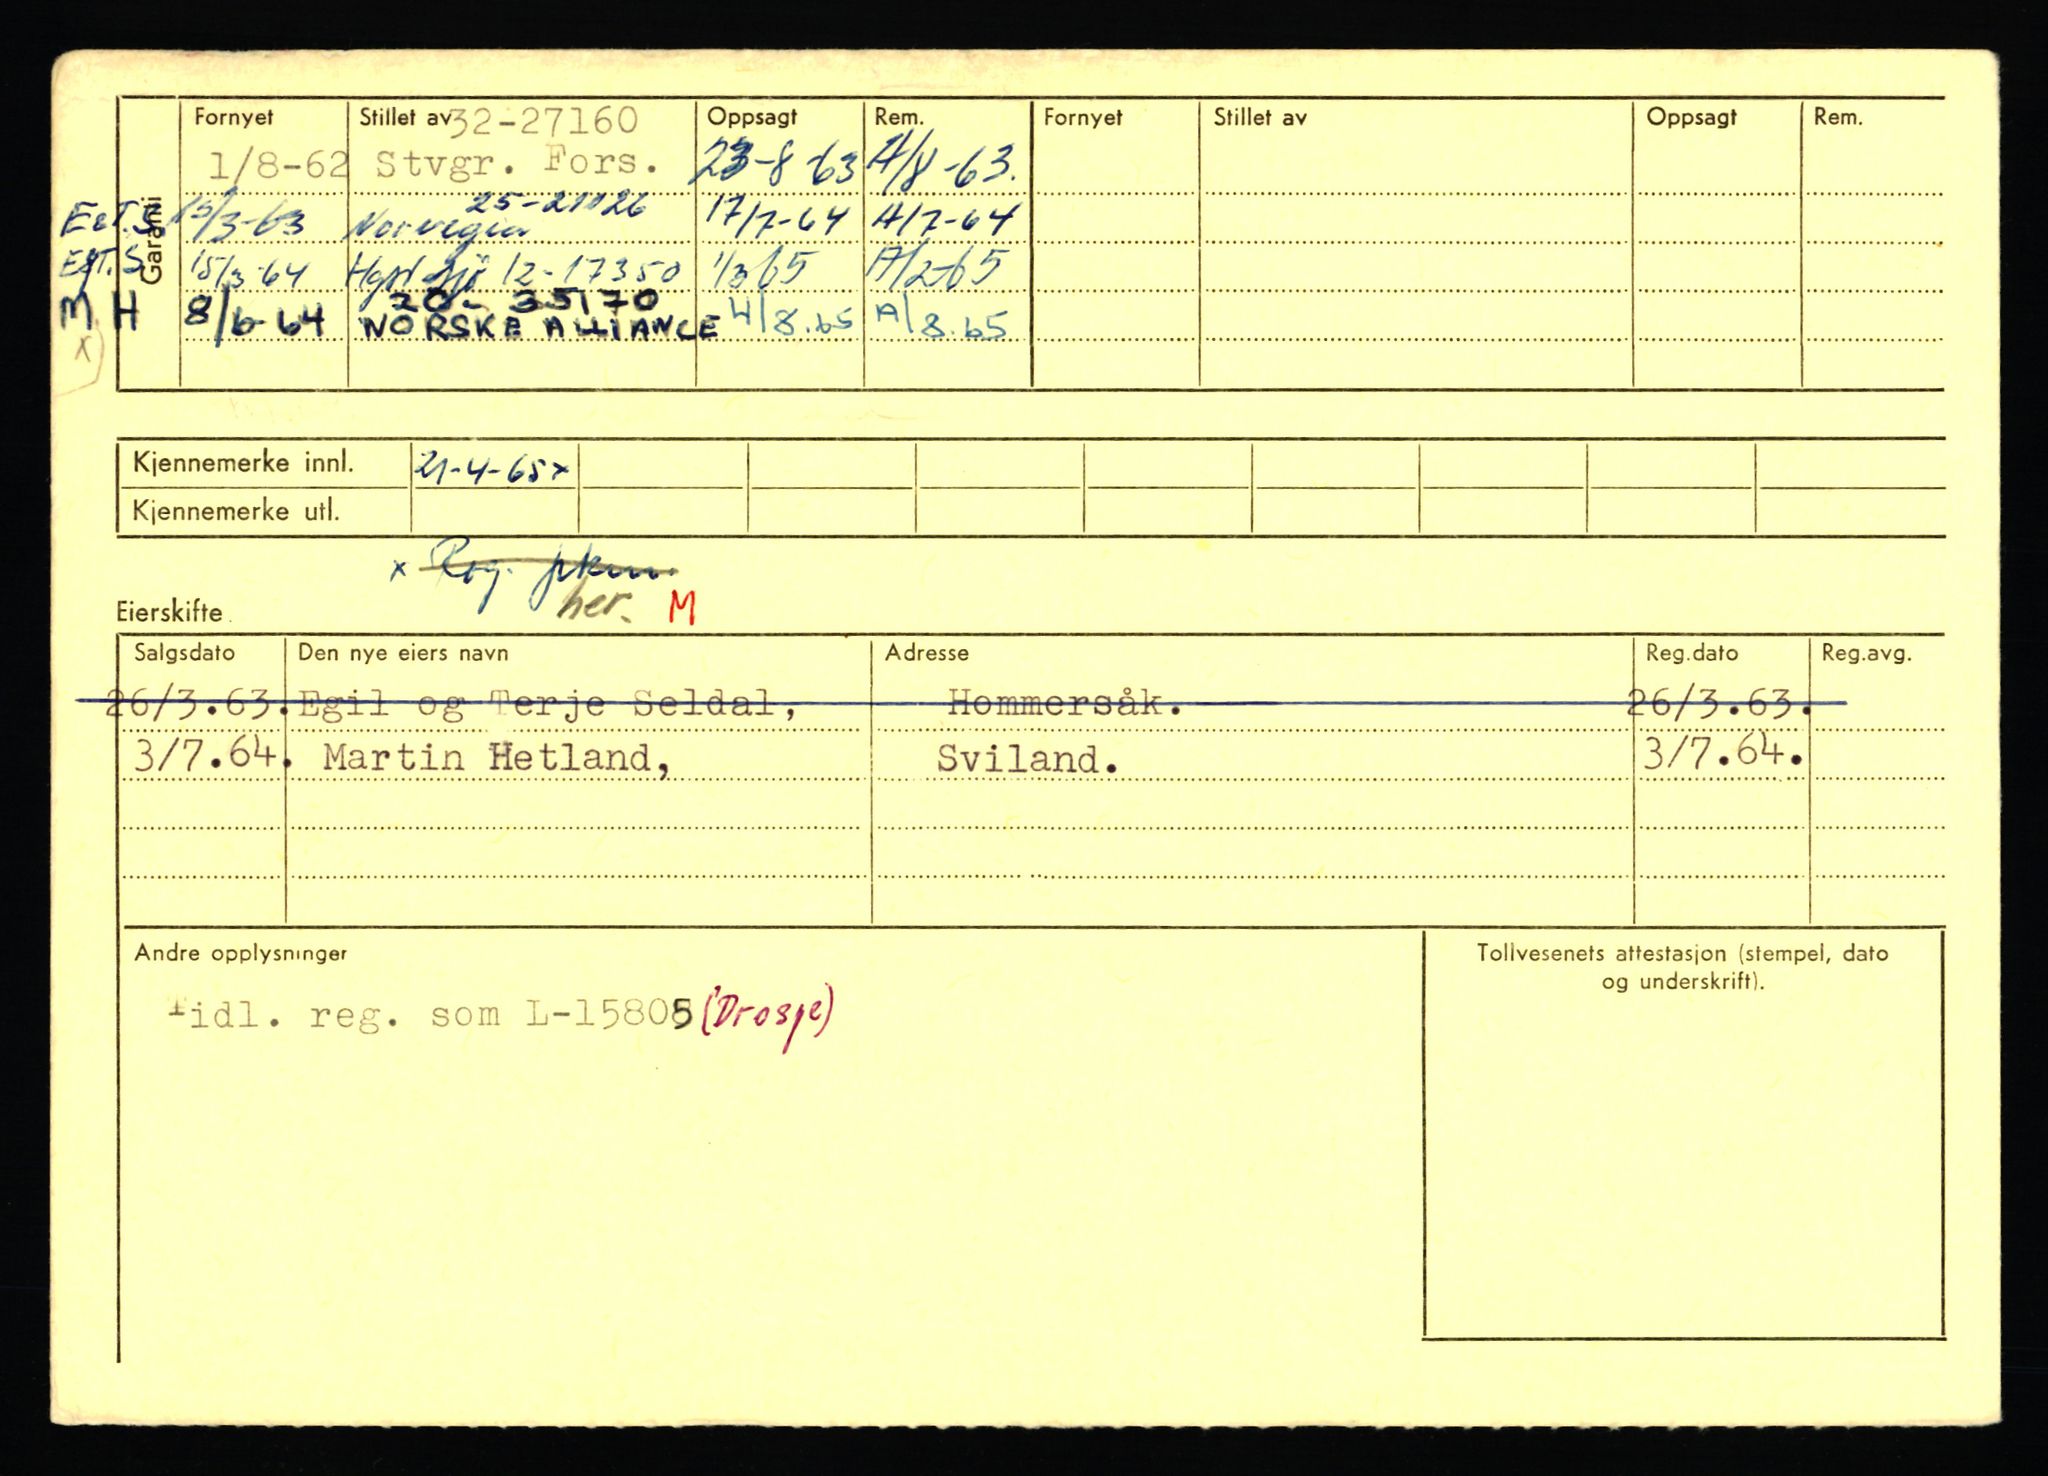 Garanti
Fornyet Stillet av 32-27160 Oppsagt Rem. Fornyet Stillet av Oppsagt Rem.
1/8-62 Stvgr. Fors. 23-8-63 A/8-63.
E&T.S 15/3-63 Norvegia 25-21026 17/7-64 A/7-64
E&T.S 15/3-64 12-17350 1/3 65 A/2-65
M H 8/6-64 20-35170 NORSKE ALLIANCE 4/8.65 A/8.65
x)
Kjennemerke innl. 21-4-65x
Kjennemerke utl.
x Rog.
her. M
Eierskifte
Salgsdato Den nye eiers navn Adresse Reg.dato Reg.avg.
26/3.63. Egil og Terje Seldal, Hommersåk. 26/3.63.
3/7.64. Martin Hetland, Sviland. 3/7.64.
Andre opplysninger
Tollvesenets attestasjon (stempel, dato
og underskrift).
Tidl. reg. som L-15805 (Drosje)